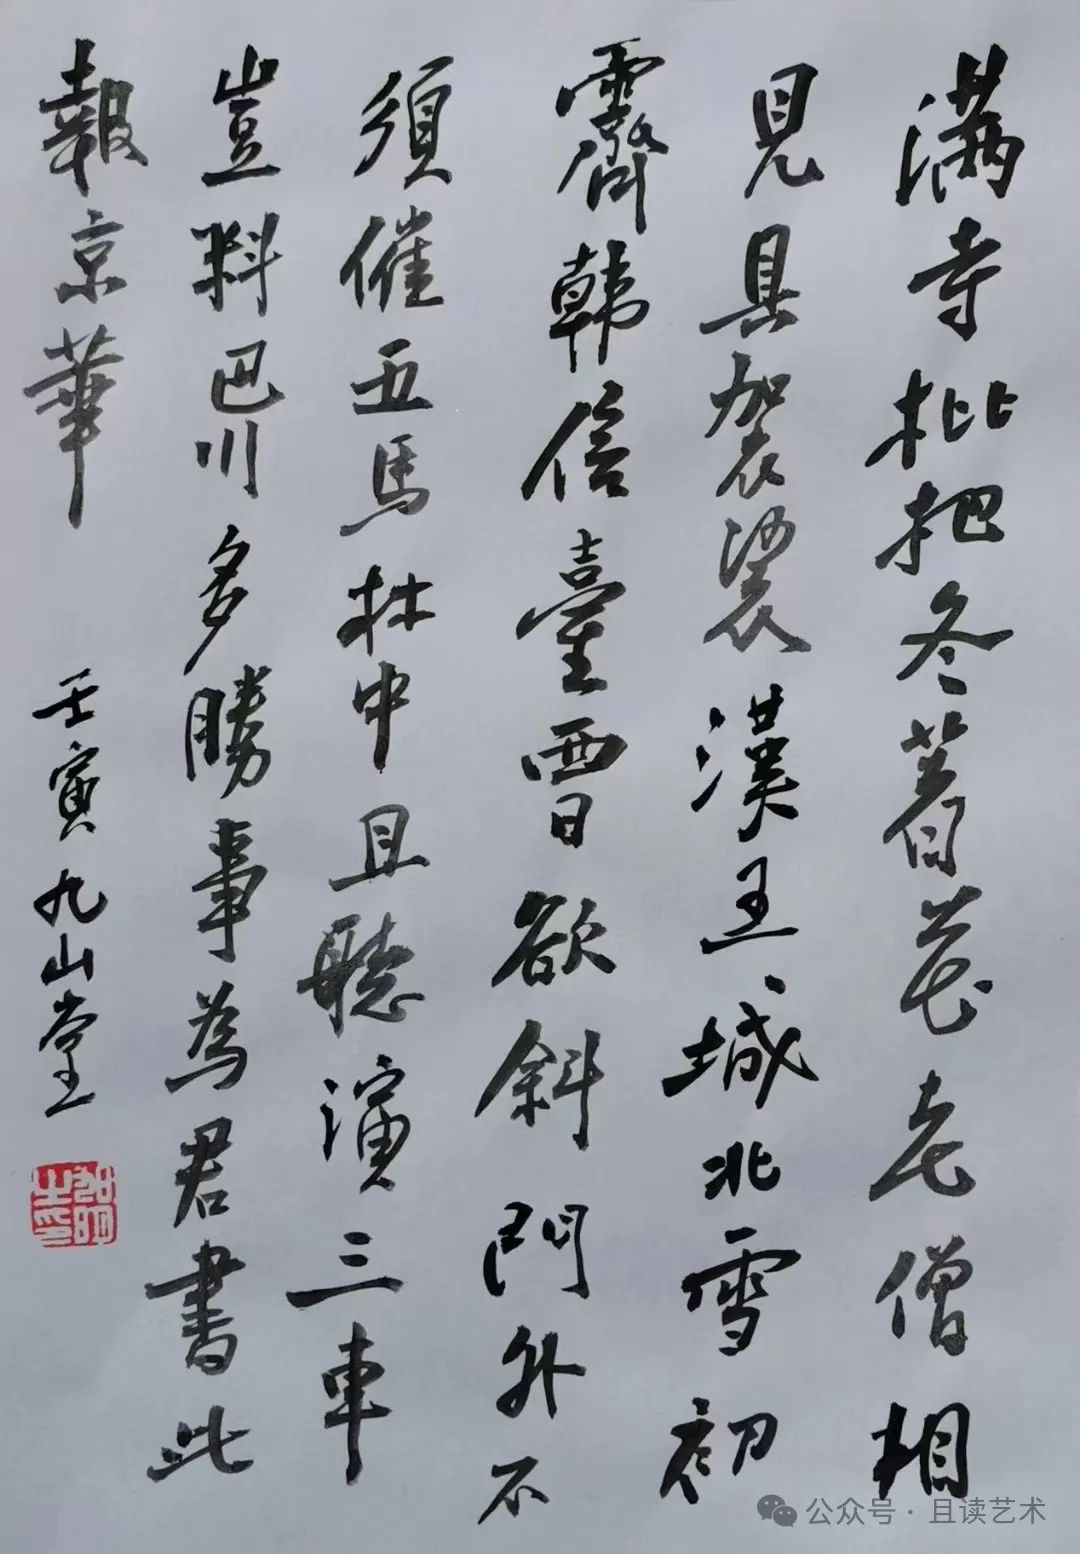 滿寺枇杷冬著花老僧相
見具袈裟漢王城北雪初
霽韓信臺西日欲斜門外不
須催五馬林中且聽演三車
豈料巴川多勝事為君書此
報京華
壬寅九山堂
公众号 · 且读艺术